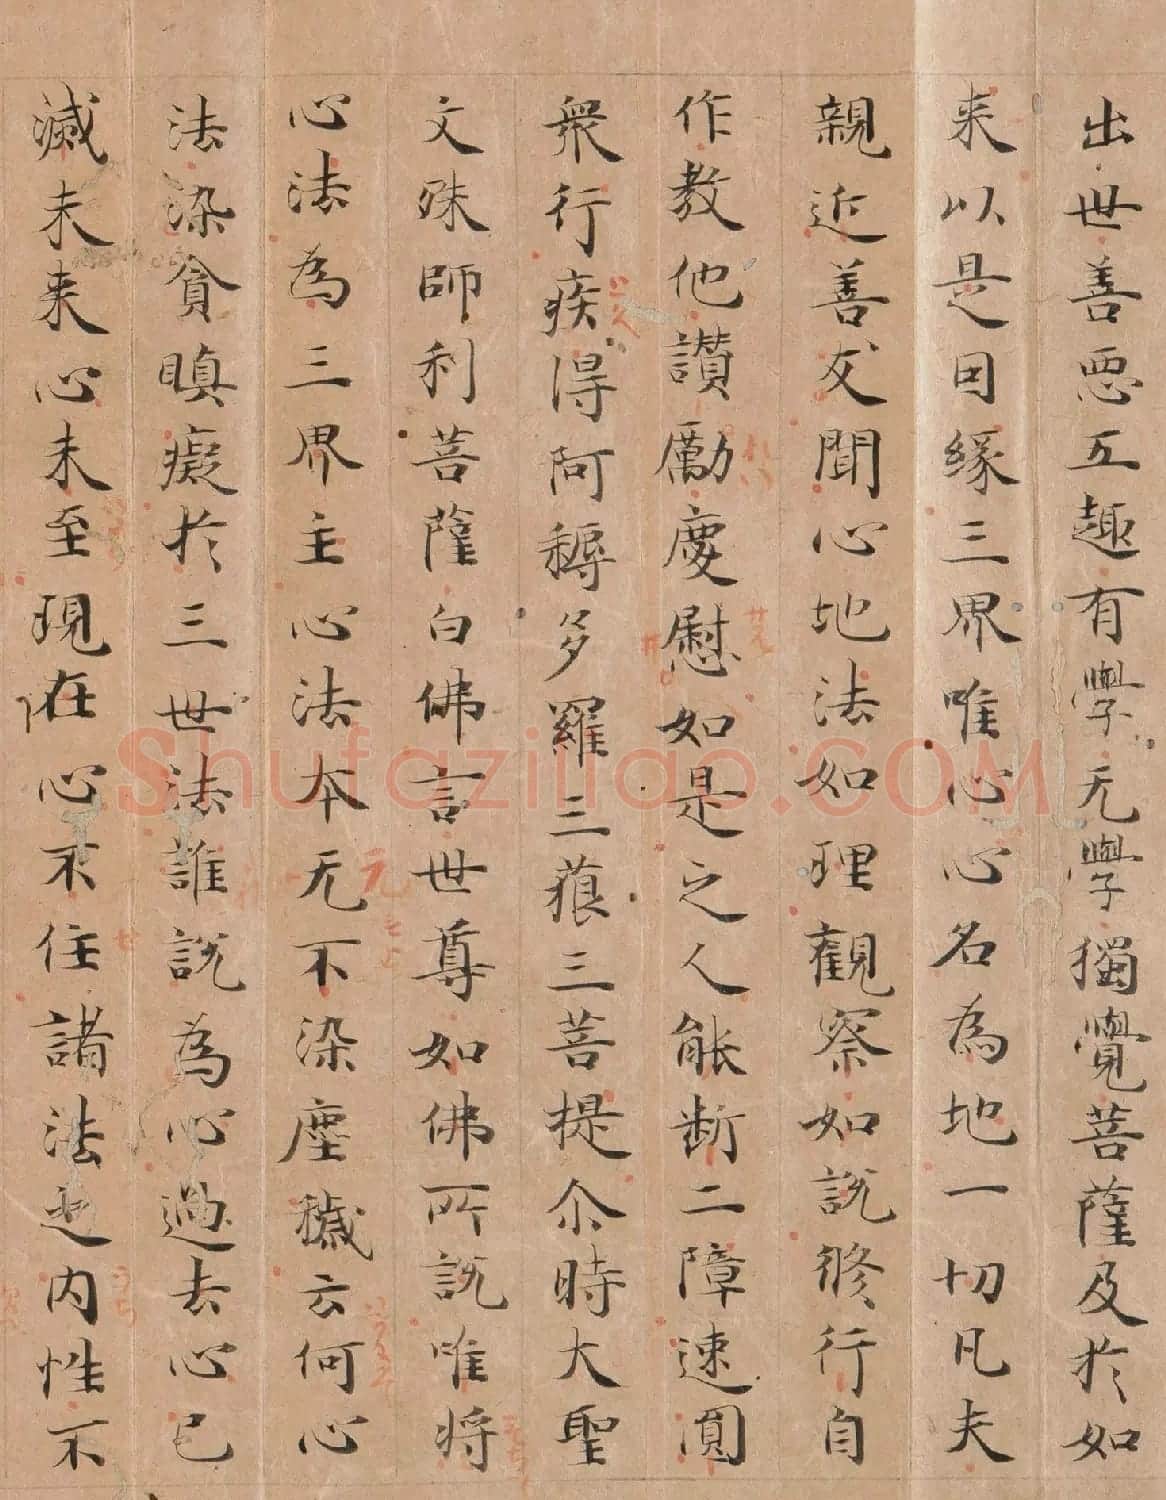 出世善悪五趣有學无學獨覺菩薩及於如
来以是因緣三界唯心心名為地一切凡夫
親近善友聞心地法如理觀察如說修行自
作教他讃勵慶慰如是之人能断二障速圓
衆行疾得阿耨多羅三藐三菩提尒時大聖
文殊師利菩薩白佛言世尊如佛所說唯将
心法為三界主心法本无不染塵穢云何心
法染貪瞋癡於三世法誰說為心過去心已
滅未来心未至現在心不住諸法之内性不
Shufaziliao.COM